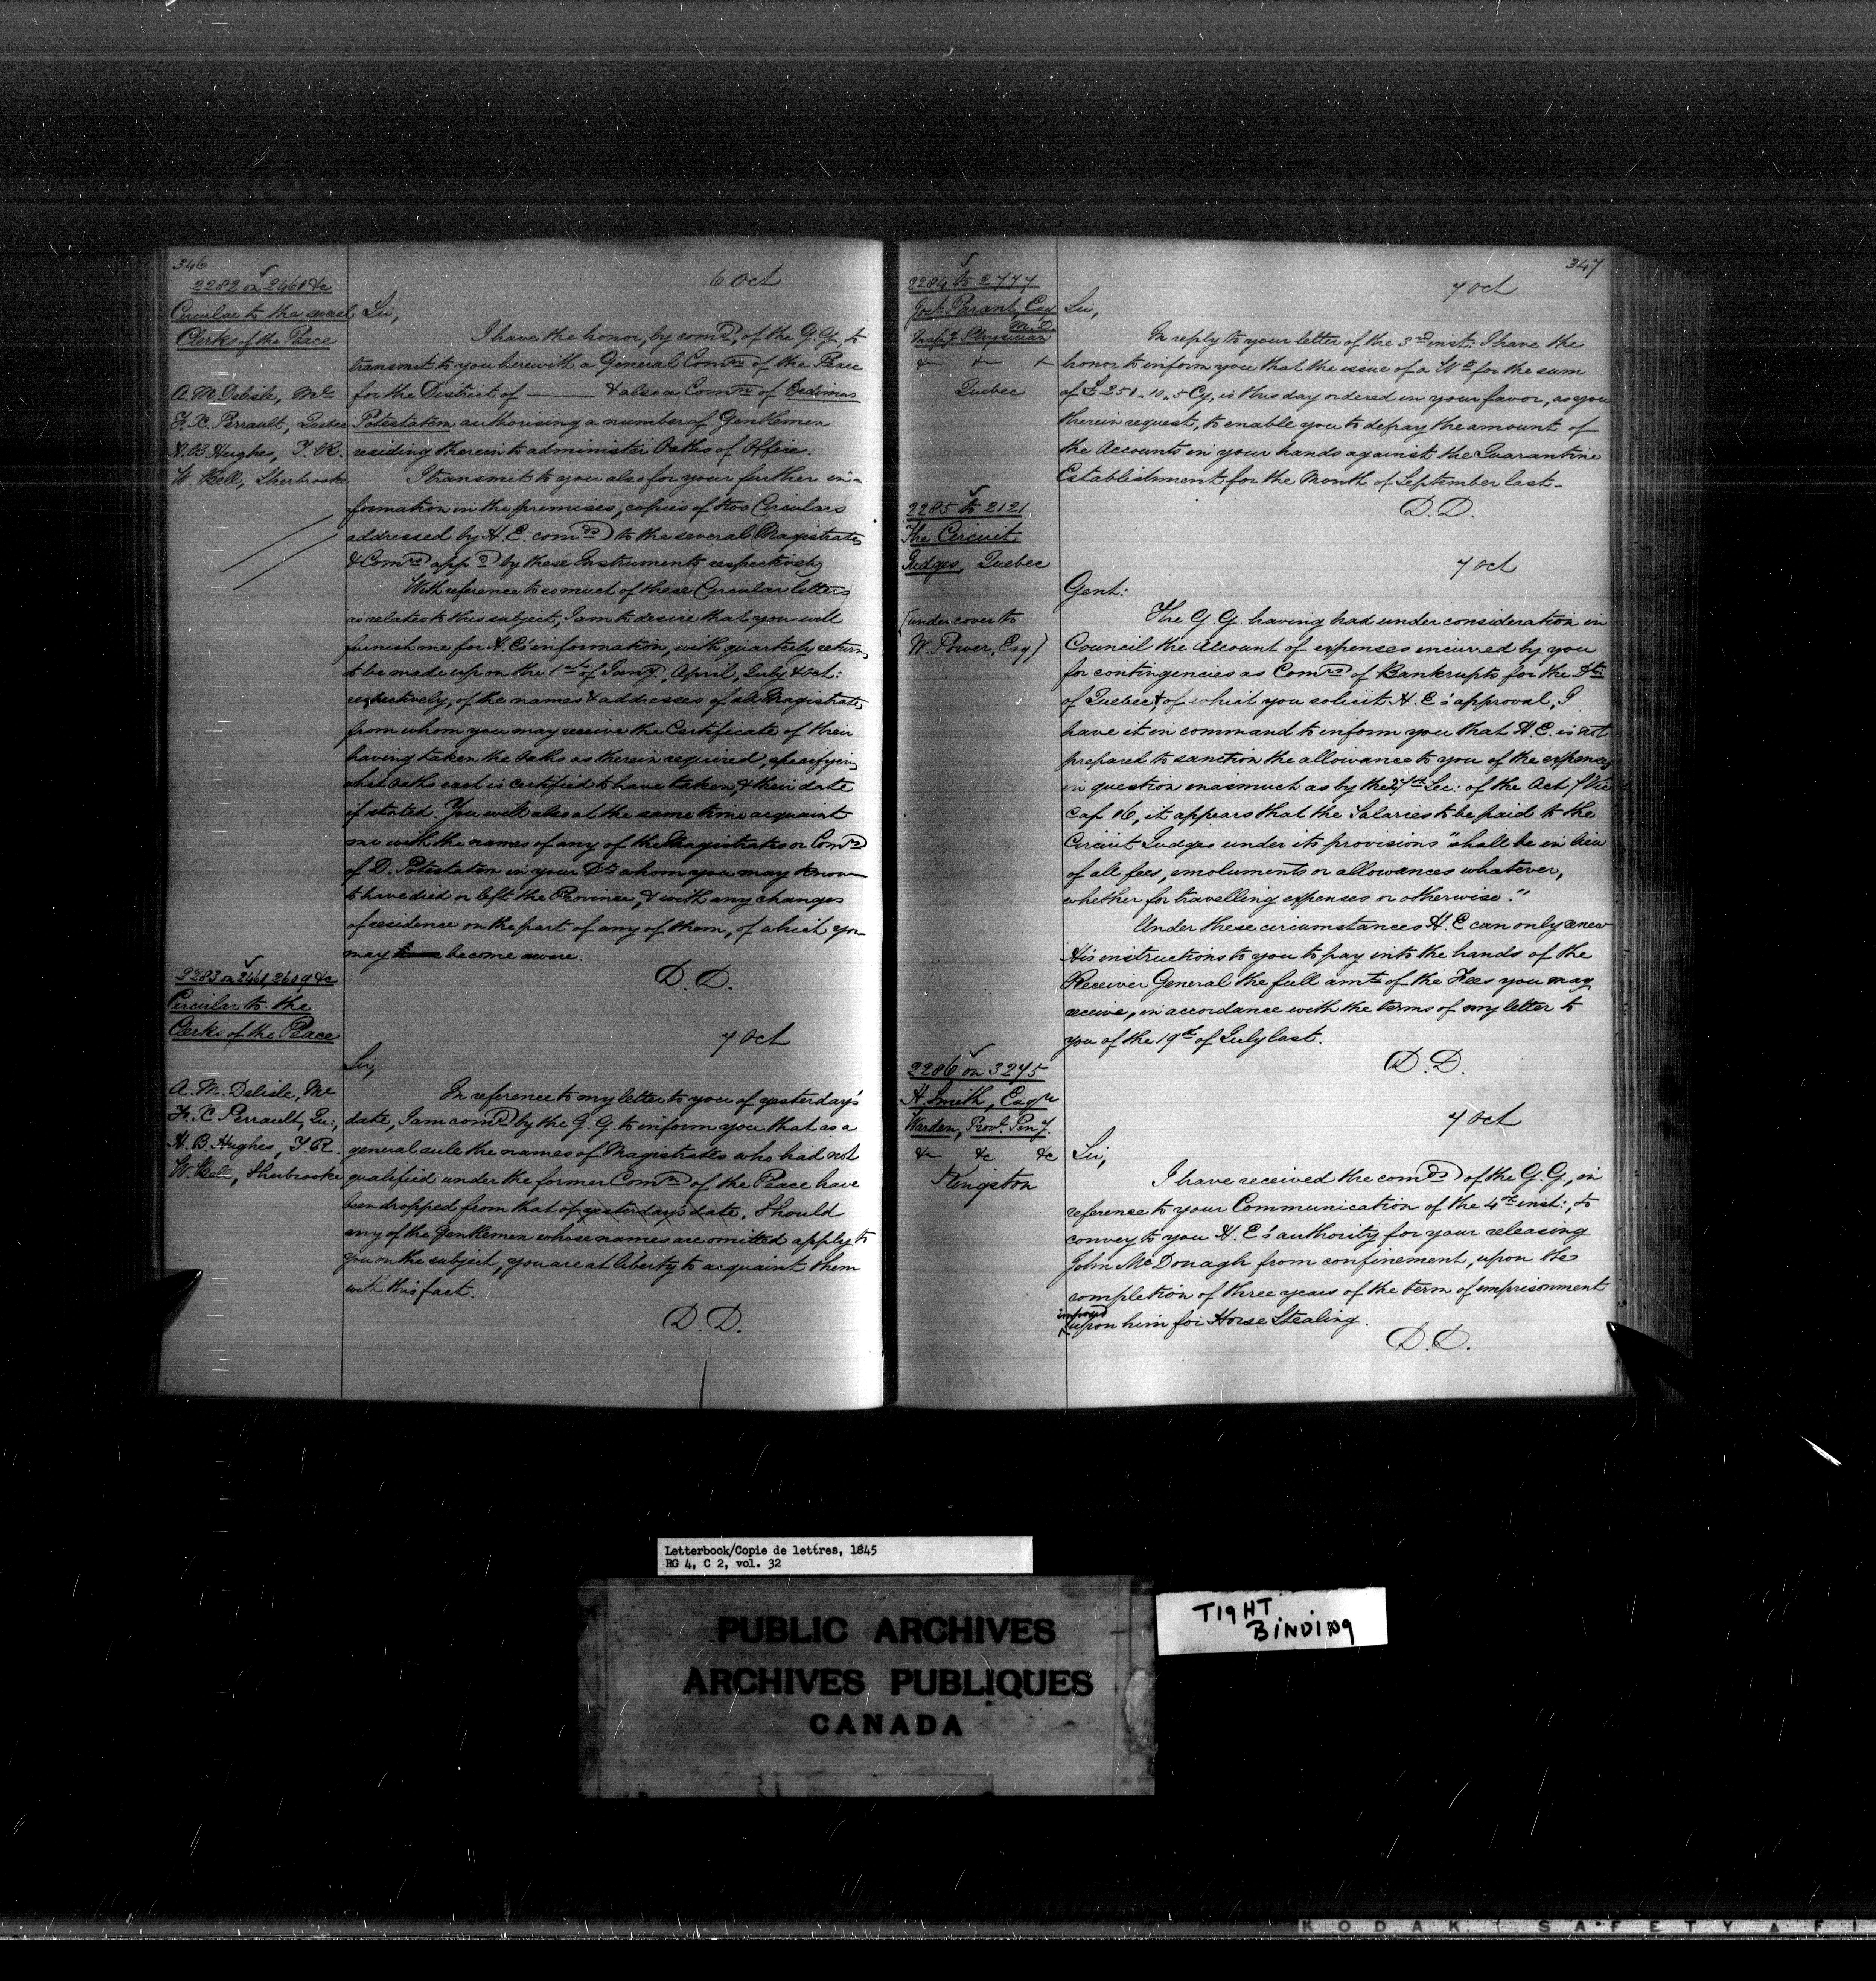 346
2282 on 2461 &c
Circular to the several
Clerks of the Peace
A. M. Delisle, Ml
F. X. Perrault, Quebec
H. B Hughes, T. R.
W. Bell, Sherbrooke
6 Oct
Sir,
I have the honor, by comd, of the G. G., to
transmit to you herewith a General Comn of the Peace
for the District of ——— & also a Comn of Dedimus
Potestatem authorising a number of Gentlemen
residing therein to administer Oaths of Office.
I transmit to you also for your further in-
formation in the premises, copies of two Circulars
addressed by H. E. comds to the several Magistrates
& Comrs appd by these Instruments respectively
With reference to so much of these Circular letters
as relates to this subject, I am to desire that you will
furnish me for H. E's information, with quarterly returns
to be made up on the 1st of Jany, April, July & Oct:
respectively, of the names & addresses of all Magistrates
from whom you may receive the Certificate of their
having taken the Oaths as therein required, specifying
what Oaths each is certified to have taken, & their date
if stated. You will also at the same time acquaint
me with the names of any of the Magistrates or Comrs
of D. Potestatem in your Dt whom you may know
to have died or left the Province, & with any changes
of residence on the part of any of them, of which you
may become aware.
D. D.
2283 on 2461, 2609 &c
Circular to the
Clerks of the Peace
A. M. Delisle, Ml
F. X. Perrault, Qu:,
H. B. Hughes, T. R.
W. Bell, Sherbrooke
7 Oct
Sir,
In reference to my letter to you of yesterday's
date, I am comd by the G. G. to inform you that as a
general rule the names of Magistrates who had not
qualified under the former Comn of the Peace have
been dropped from that of yesterday's date. Should
any of the Gentlemen whose names are omitted apply to
you on the subject, you are at liberty to acquaint them
with this fact.
D. D.
347
2284 to 2777
Josh Parant, Esq
M. D.
Inspg Physician
&c &c &c
Quebec
7 Oct
Sir,
In reply to your letter of the 3rd inst: I have the
honor to inform you that the issue of a Wt for the sum
of £251. 10. 5 Cy, is this day ordered in your favor, as you
therein request, to enable you to defray the amount of
the Accounts in your hands against the Quarantine
Establishment for the Month of September last.
D. D.
2285 to 2121
The Circuit
Judges, Quebec
(under cover to
W. Power, Esq)
7 Oct
Gent:
The G. G. having had under consideration in
Council the Account of expenses incurred by you
for contingencies as Comrs of Bankrupts for the Dt
of Quebec & of which you solicit H. E's approval, I
have it in command to inform you that H. E. is not
prepared to sanction the allowance to you of the expenses
in question inasmuch as by the Sec: of the Act 7 Vic
Cap 16, it appears that the Salaries to be paid to the
Circuit Judges under its provisions "shall be in lieu
of all fees, emoluments or allowances whatever,
whether for travelling expenses or otherwise."
Under these circumstances H. E can only renew
His instructions to you to pay into the hands of the
Receiver General the full amt of the Fees you may
receive, in accordance with the terms of my letter to
you of the 19th of July last.
D. D.
2286 on 3275
H. Smith, Esqre
Warden, Provl. Peny.
&c &c &c
Kingston
7 Oct
Sir,
I have received the comds of the G. G., in
reference to your Communication of the 4th inst:, to
convey to you H. E's authority for your releasing
John McDonagh from confinement, upon the
completion of three years of the term of imprisonment
imposed
upon him for Horse Stealing.
D. D.
Letterbook/Copie de lettres, 1845
RG 4, C 2, vol. 32
PUBLIC ARCHIVES
ARCHIVES PUBLIQUES
CANADA
TIGHT
BINDING
KODAK SAFETY FI